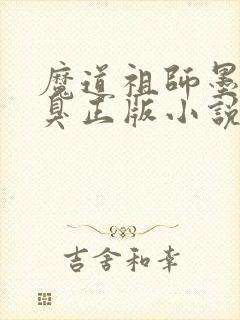 魔道祖師墨
臭正版小説
吉舍和幸